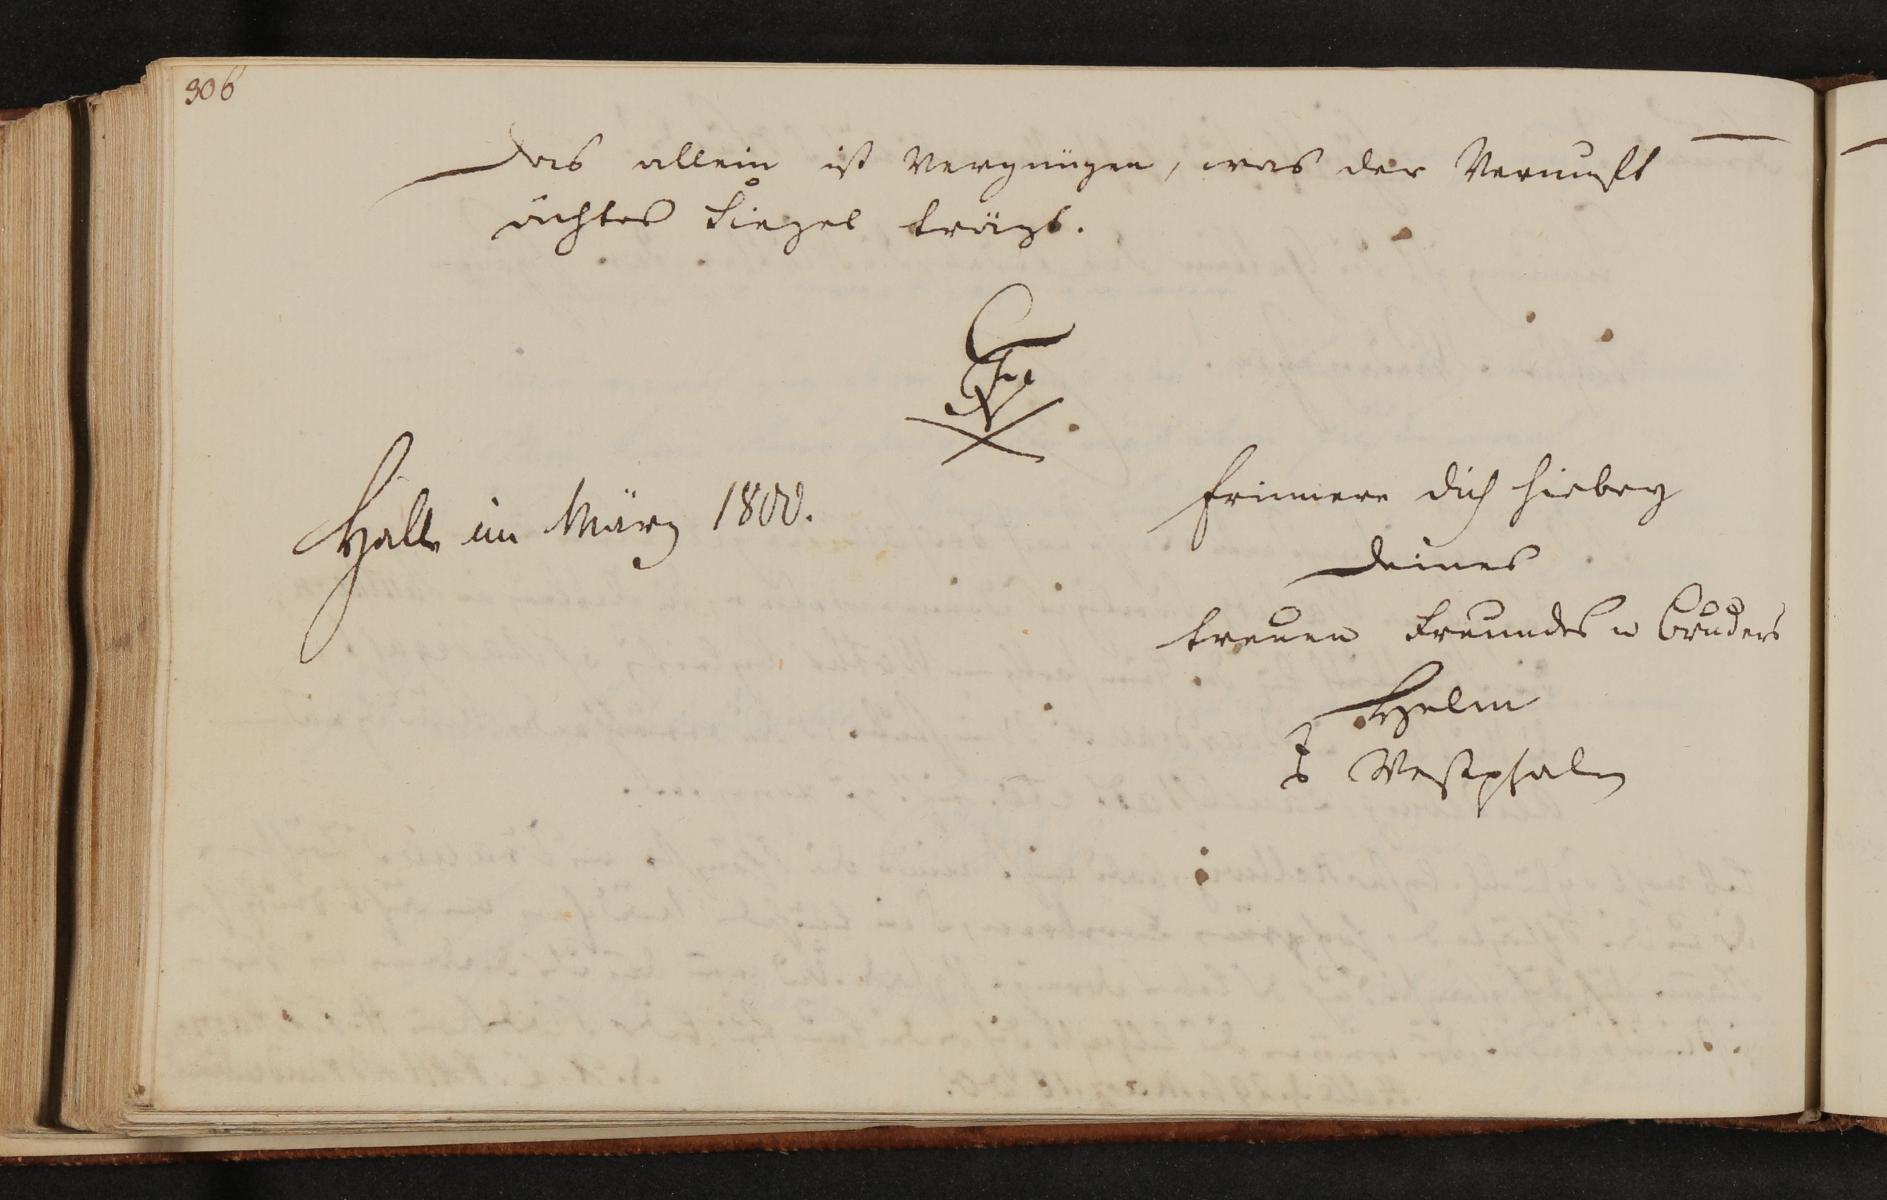 306
Das allein ist Vergnügen, was der Vernunft
ächtes Siegel trägt.
Halle im März 1800.
Erinnere dich hiebey
deines
treuen Freundes u Bruders
Helm
Westphalen